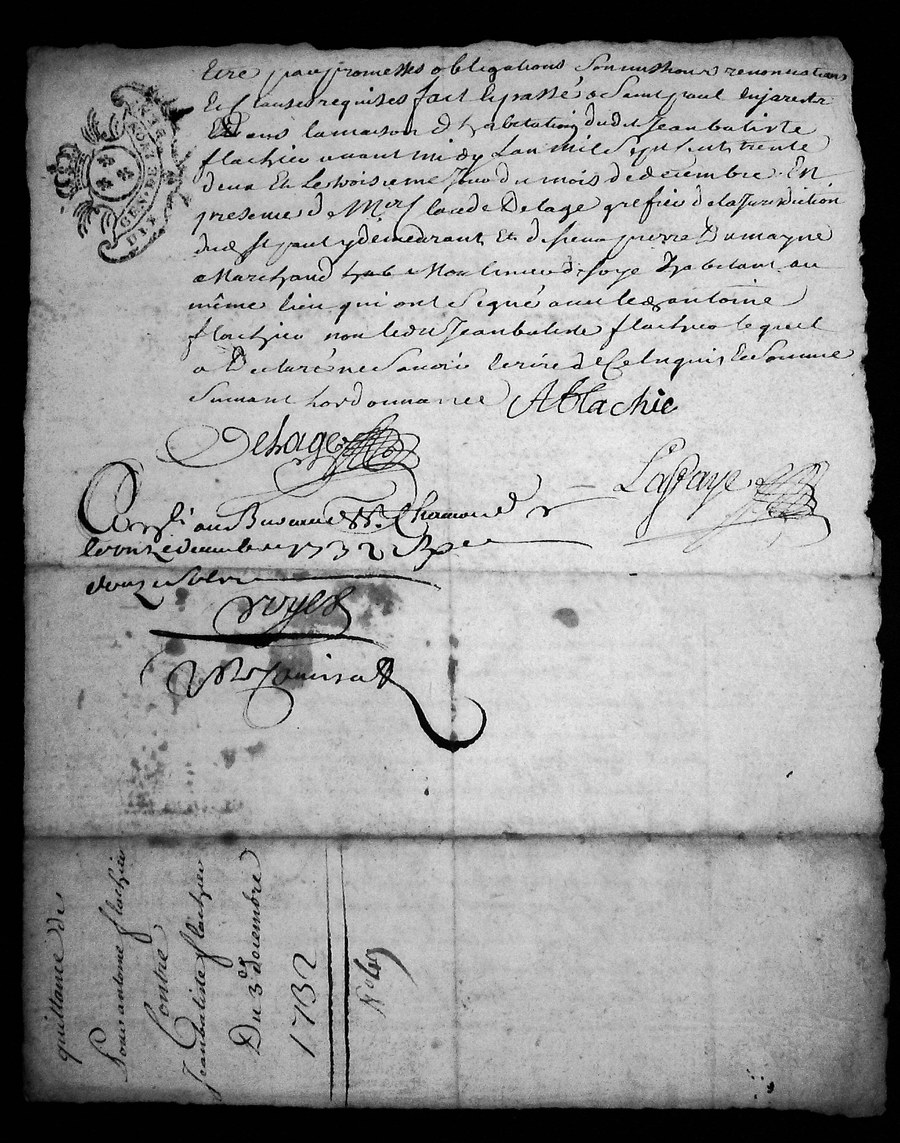 Etre par promesses obligations soumissions renonciations
Et Clauses requises fait Et passé a Saint paul En jarestz
Et dans la maison d'habitation dudit Jean batiste
flachieu avant midy Lan mil sept cents trente
deux Et Le troisieme Jour du mois de decembre. En
presence de Me Claude Delage greffieu de la Juridiction
dud st paul y demeurant Et de sieur pierre Dumayne
Marchand Moulineur de soye habitant au
même lieu qui ont signé avec led antoine
flachieu non ledit Jean batiste flachieu lequel
a Declaré ne savoir Ecrire de Ce Enquis Et Sommé
suivant Lordonnance AFlachie
Delage
Lafaye
Controllé au Bureau de St. Chamond
le onze decembre 1732
douze sols
GEN. DE LION
quittance de
Pour antoine flachieu
Contre
Jean batiste flachieu
Du 3e decembre
1732